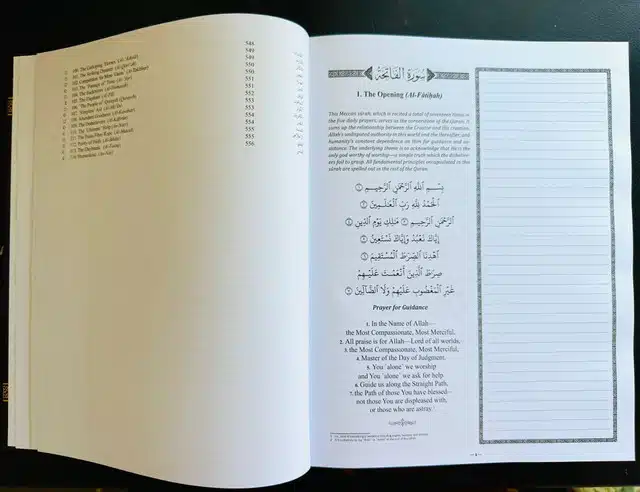 100. The Galloping Horses (Al-'Adiyât) 548
101. The Striking Disaster (Al-Qâri'ah) 549
102. Competition for More Gains (At-Takâthur) 549
103. The Passage of Time (Al-'Aṣr) 550
104. The Backbiters (Al-Humazah) 550
105. The Elephant (Al-Fîl) 551
106. The People of Quraysh (Quraysh) 551
107. 552
108. Abundant Goodness (Al-Kawthar) 553
109. The Disbelievers (Al-Kâfirûn) 553
110. The Ultimate Help (An-Naṣr) 554
111. The Palm-Fibre Rope (Al-Masad) 554
112. 555
113. The Daybreak (Al-Falaq) 555
114. Humankind (An-Nâs) 556
سُورَةُ الْفَاتِحَةِ
1. The Opening (Al-Fâtiḥah)
This Meccan sûrah, which is recited a total of seventeen times in
the five daily prayers, serves as the cornerstone of the Quran. It
sums up the relationship between the Creator and His creation,
Allah's undisputed authority in this world and the Hereafter, and
humanity's constant dependence on Him for guidance and as-
sistance. The underlying theme is to acknowledge that He is the
only god worthy of worship—a simple truth which the disbeliev-
ers fail to grasp. All fundamental principles encapsulated in this
sûrah are spelled out in the rest of the Quran.
بِسْمِ ٱللَّهِ ٱلرَّحْمَٰنِ ٱلرَّحِيمِ ١
ٱلْحَمْدُ لِلَّهِ رَبِّ ٱلْعَٰلَمِينَ ٢
ٱلرَّحْمَٰنِ ٱلرَّحِيمِ ٣ مَٰلِكِ يَوْمِ ٱلدِّينِ ٤
إِيَّاكَ نَعْبُدُ وَإِيَّاكَ نَسْتَعِينُ ٥
ٱهْدِنَا ٱلصِّرَٰطَ ٱلْمُسْتَقِيمَ ٦
صِرَٰطَ ٱلَّذِينَ أَنْعَمْتَ عَلَيْهِمْ
غَيْرِ ٱلْمَغْضُوبِ عَلَيْهِمْ وَلَا ٱلضَّآلِّينَ ٧
Prayer for Guidance
1. In the Name of Allah—
the Most Compassionate, Most Merciful.
2. All praise is for Allah—Lord of all worlds,
3. the Most Compassionate, Most Merciful,
4. Master of the Day of Judgment.
5. You ˹alone˺ we worship
and You ˹alone˺ we ask for help.
6. Guide us along the Straight Path,
7. the Path of those You have blessed—
not those You are displeased with,
or those who are astray.